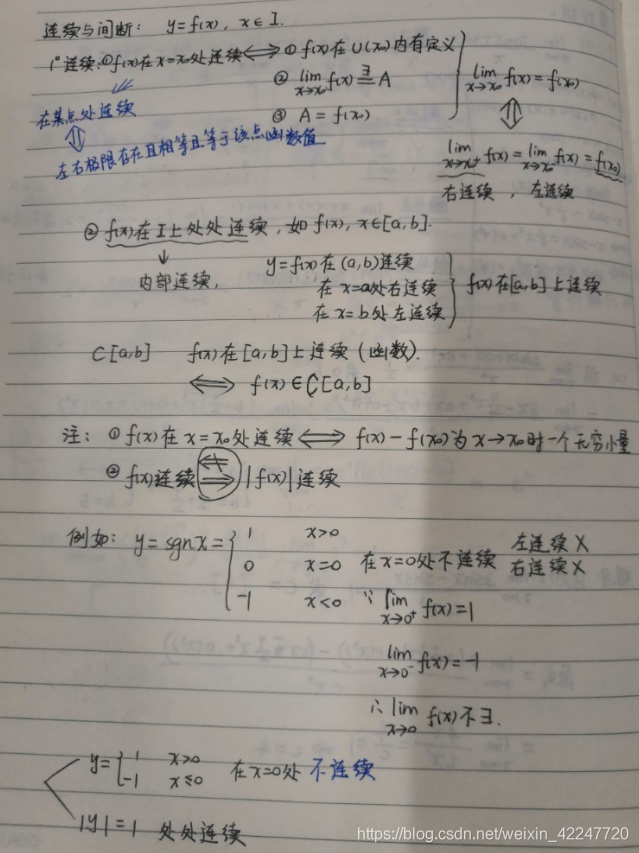 连续与间断: y=f(x), x∈I.
1° 连续:①f(x)在x=x₀处连续⟺① f(x)在U(x₀)内有定义
② lim x→x₀ f(x) ∃= A
③ A = f(x₀)
lim x→x₀ f(x)=f(x₀)
⇕
lim x→x₀⁺ f(x)=lim x→x₀⁻ f(x)=f(x₀)
右连续, 左连续
在某点处连续
⇕
左右极限存在且相等且等于该点函数值
② f(x)在I上处处连续, 如f(x), x∈[a,b].
↓
内部连续,
y=f(x)在(a,b)连续
在x=a处右连续
在x=b处左连续
f(x)在[a,b]上连续
C[a,b] f(x)在[a,b]上连续(函数).
⟺ f(x)∈C[a,b]
注: ①f(x)在x=x₀处连续⟺ f(x)-f(x₀)为x→x₀时一个无穷小量
② f(x)连续 ⇍ ⇒ |f(x)|连续
例如: y=sgnx= { 1 x>0
0 x=0
-1 x<0
在x=0处不连续 左连续X
右连续X
∵ lim x→0⁺ f(x)=1
lim x→0⁻ f(x)=-1
∴ lim x→0 f(x)不∃.
y= { 1 x>0
-1 x≤0
在x=0处 不连续
|y|=1 处处连续
https://blog.csdn.net/weixin_42247720